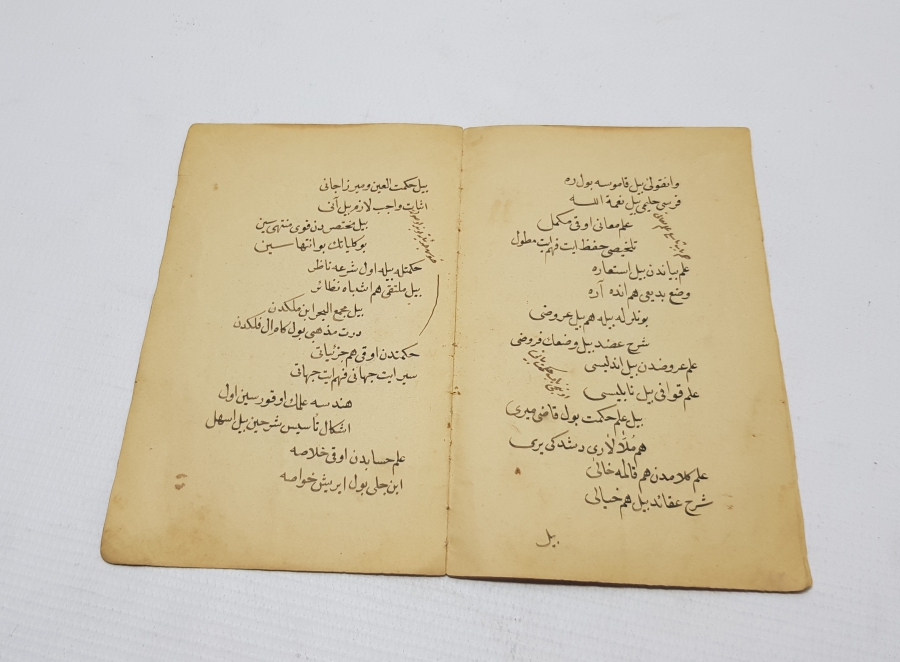 وانقولی بیل قاموسه بول ره
فرسی حلیمی بیل نعمة الله
علم معانی اوقی مکمل
تلخیصی حفظ ایت فهم ایت مطول
علم بیاندن بیل استعاره
وضع بدیعی هم انده آره
بونلرله بیله هم بیل عروضی
شرح عضد بیل وضعك فروضی
علم عروضدن بیل اندلیسی
علم قوافی بیل نابلیسی
بیل علم حکمت بول قاضی میری
هم ملا لاری رشد کی یری
علم کلامدن هم قالمه خالی
شرح عقائد بیل هم خیالی
بیل
بیل حکمت العین و میرزاجانی
اثبات واجب لازم بیل آنی
بیل مختصردن قوی منتهی سین
بو کلیاتك بو انتهاسین
حکمتله بیله اول شرعه ناظر
بیل ملتقی هم اشباه نظائر
بیل مجمع البحر ابن ملکدن
درت مذهبی بول کام آل فلکدن
حکمتدن اوقی هم جزئیاتی
سیر ایت جهانی فهم ایت جهاتی
هندسه علمك اوقور سین اول
اشکال تأسیس شرحین بیل اسهل
علم حسابدن اوقی خلاصه
ابن جلی بول ایریش خواصه